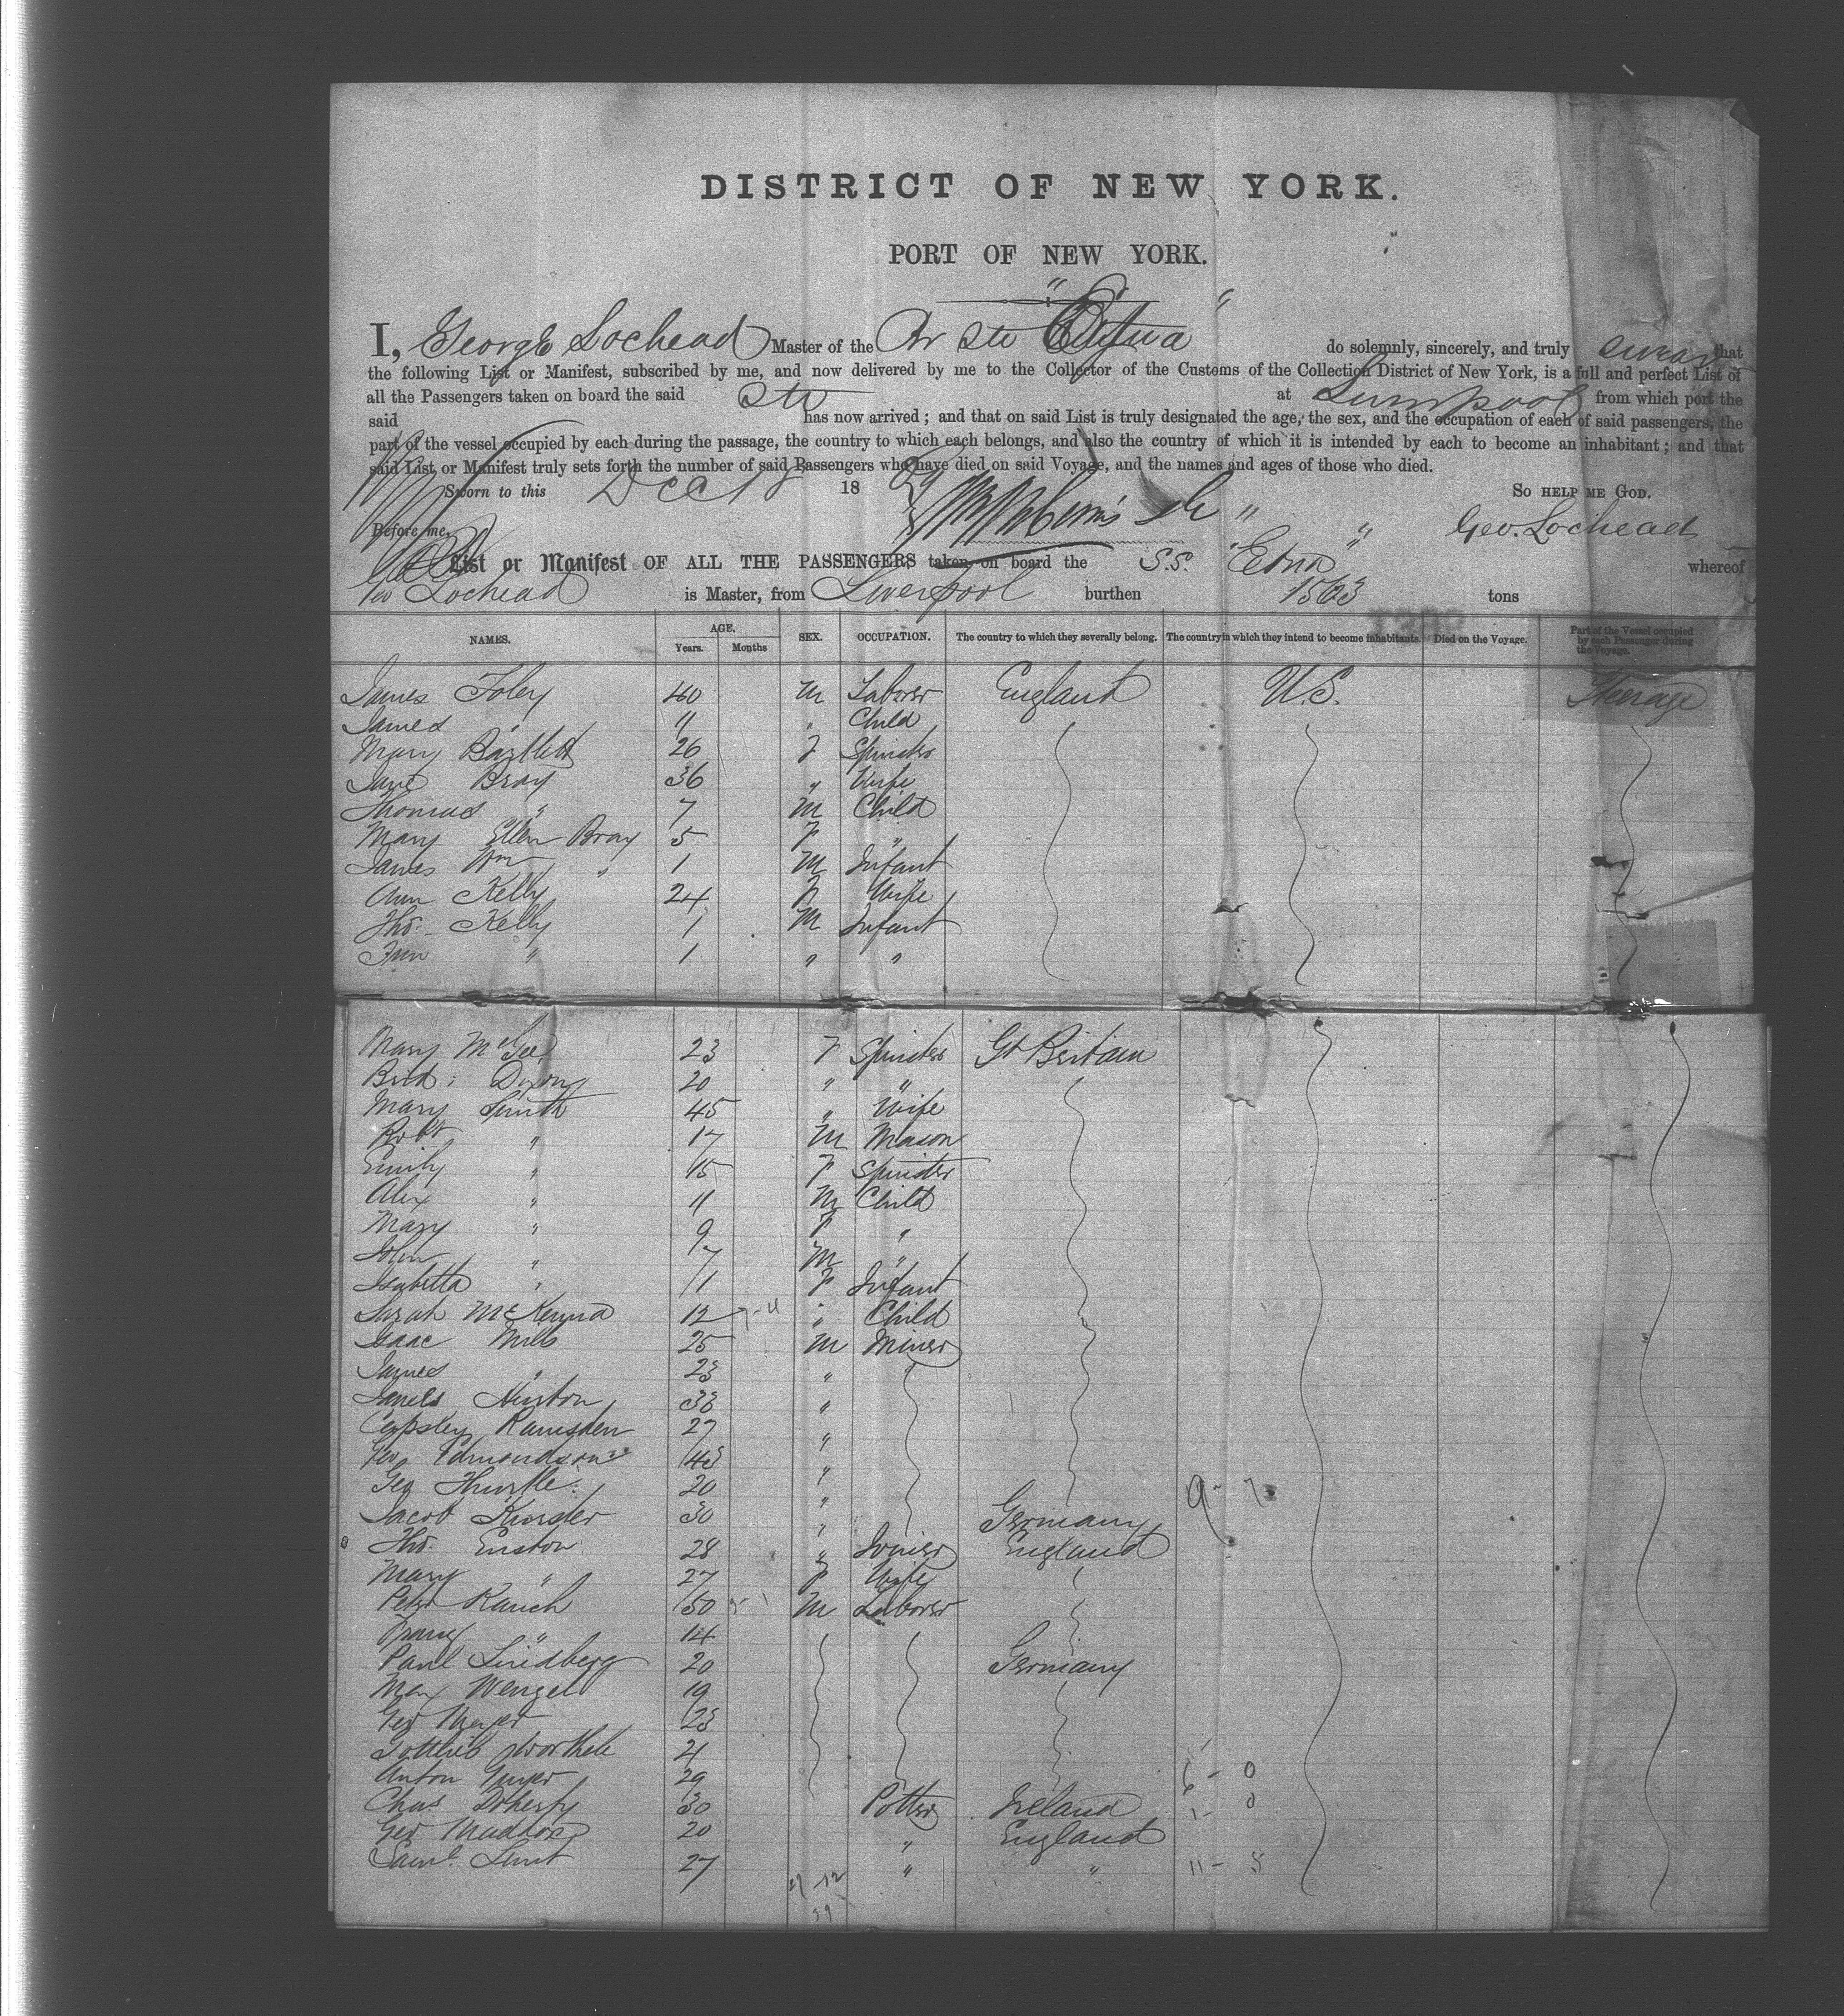 DISTRICT OF NEW YORK.
PORT OF NEW YORK.
I, George Lochead Master of the Br Str "Etna" do solemnly, sincerely, and truly swear that
the following List or Manifest, subscribed by me, and now delivered by me to the Collector of the Customs of the Collection District of New York, is a full and perfect List of
all the Passengers taken on board the said Str at Liverpool from which port the
said has now arrived; and that on said List is truly designated the age, the sex, and the occupation of each of said passengers, the
part of the vessel occupied by each during the passage, the country to which each belongs, and also the country of which it is intended by each to become an inhabitant; and that
said List or Manifest truly sets forth the number of said Passengers who have died on said Voyage, and the names and ages of those who died.
Sworn to this Dec 18 18 69 So HELP ME GOD.
Before me, Geo. Lochead
List or Manifest OF ALL THE PASSENGERS taken on board the S.S. "Etna" whereof
Geo Lochead is Master, from Liverpool burthen 1563 tons
NAMES. AGE. Years. Months SEX. OCCUPATION. The country to which they severally belong. The country in which they intend to become inhabitants. Died on the Voyage. Part of the Vessel occupied by each Passenger during the Voyage.
James Foley 40 M Laborer England U.S. Steerage
James " 11 " Child
Mary Bartlett 26 F Spinster
Jane Bray 36 " Wife
Thomas " 7 M Child
Mary Ellen Bray 5 F "
James Wm " 1 M Infant
Ann Kelly 24 F Wife
Thos. Kelly 1 M Infant
" 1 " "
Mary McGee 23 F Spinster Gt Britain
Brid: Dixon 20 " "
Mary Smith 45 " Wife
Robt " 17 M Mason
Emily " 15 F Spinster
Alex " 11 M Child
Mary " 9 F "
John " 7 M "
Isabella " 1 F Infant
Sarah McKenna 12 " Child
Isaac Mills 25 M Miner
James " 23 "
James Hinton 38 "
Ramsden 27 "
Geo Edmondson 43 "
Geo 20 "
Jacob 30 " Germany
Thos. Enston 28 " Joiner England
Mary " 27 F Wife
Peter Rauch 50 M Laborer
Franz " 14
Paul Lindberg 20 Germany
Max Wenzel 19
Geo Meyer 23
Gottlieb 21
Anton 29 6 - 0
Chas. Doherty 30 Potter Ireland 1 - 0
Geo Maddox 20 " England
Saml. Lunt 27 " " 11 - 5